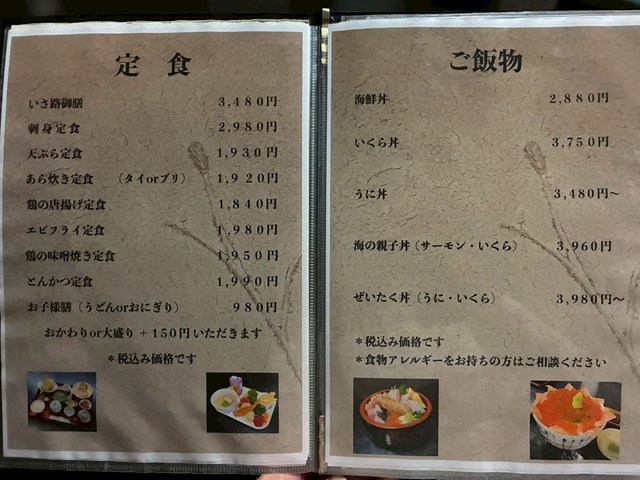 定 食
いさ路御膳 3,480円
刺身定食 2,980円
天ぷら定食 1,930円
あら炊き定食 (タイorブリ) 1,920円
鶏の唐揚げ定食 1,840円
エビフライ定食 1,980円
鶏の味噌焼き定食 1,950円
とんかつ定食 1,990円
お子様膳(うどんorおにぎり) 980円
おかわりor大盛り +150円いただきます
*税込み価格です
ご飯物
海鮮丼 2,880円
いくら丼 3,750円
うに丼 3,480円~
海の親子丼(サーモン・いくら) 3,960円
ぜいたく丼(うに・いくら) 3,980円~
*税込み価格です
*食物アレルギーをお持ちの方はご相談ください